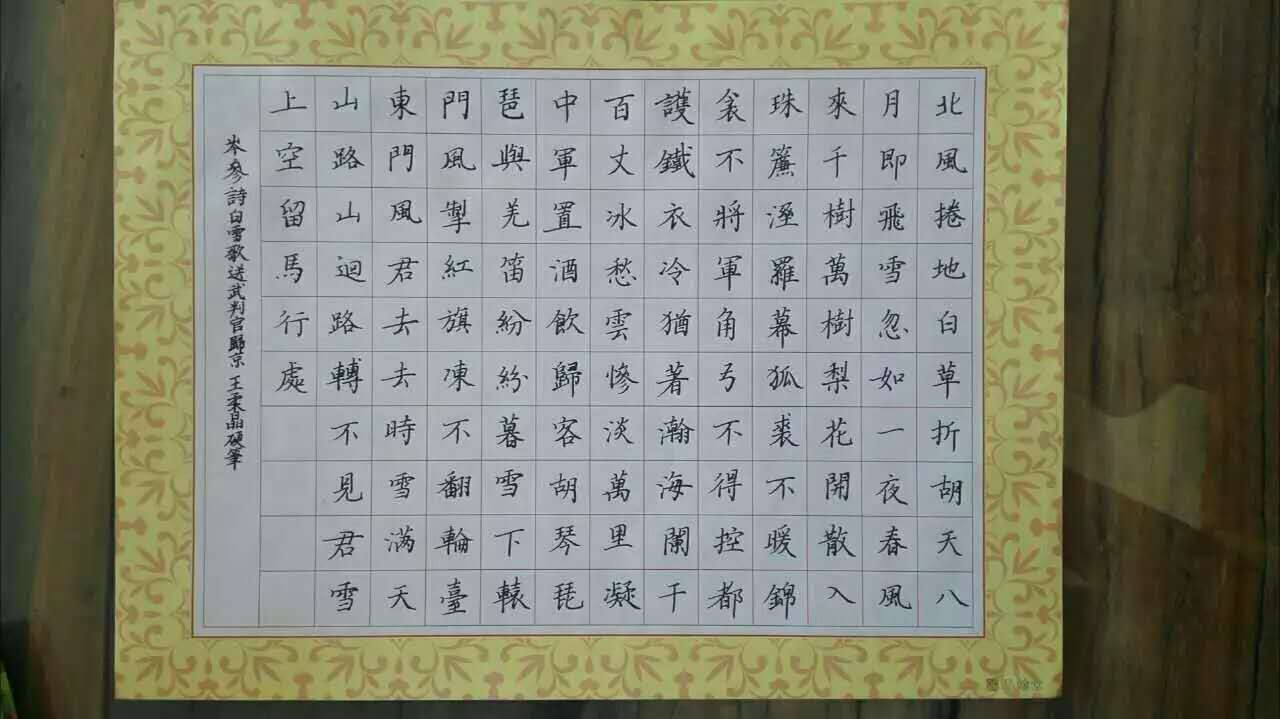 北風捲地白草折胡天八
月即飛雪忽如一夜春風
來千樹萬樹梨花開散入
珠簾溼羅幕狐裘不暖錦
衾不將軍角弓不得控都
護鐵衣冷猶著瀚海闌干
百丈冰愁雲慘淡萬里凝
中軍置酒飲歸客胡琴琵
琶與羌笛紛紛暮雪下轅
門風掣紅旗凍不翻輪臺
東門風君去去時雪滿天
山路山迴路轉不見君雪
上空留馬行處
岑參詩白雪歌送武判官歸京 王柔晶硬筆